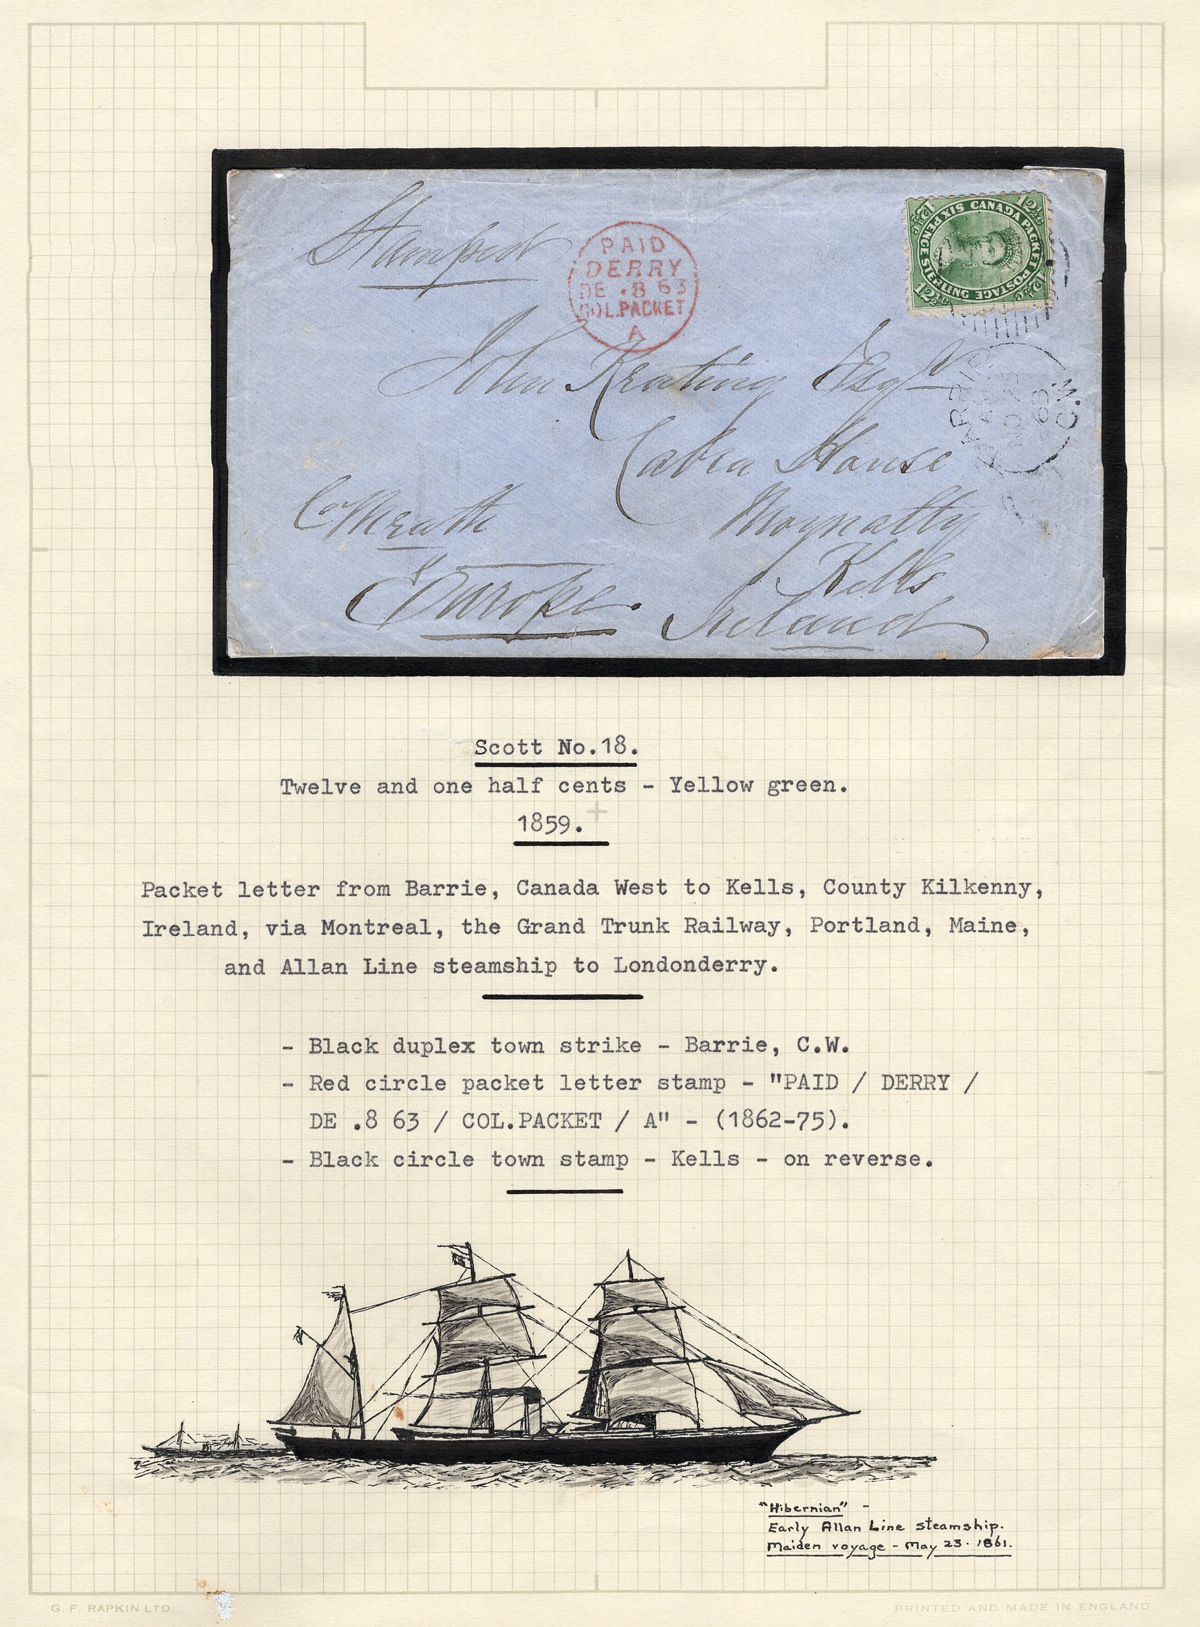 Stamped
PAID
DERRY
DE .8 63
COL.PACKET
A
12½c
CANADA PACKET POSTAGE
SIX PENCE STERLING
BARRIE
NO 23
63
C.W.
John Keating Esqr
Cabra House
Co Meath
Moynalty
Kells
Europe.
Ireland
Scott No.18.
Twelve and one half cents - Yellow green.
1859.
Packet letter from Barrie, Canada West to Kells, County Kilkenny,
Ireland, via Montreal, the Grand Trunk Railway, Portland, Maine,
and Allan Line steamship to Londonderry.
- Black duplex town strike - Barrie, C.W.
- Red circle packet letter stamp - "PAID / DERRY /
DE .8 63 / COL.PACKET / A" - (1862-75).
- Black circle town stamp - Kells - on reverse.
"Hibernian" -
Early Allan Line steamship.
Maiden voyage - May 23. 1861.
G. F. RAPKIN LTD.
PRINTED AND MADE IN ENGLAND